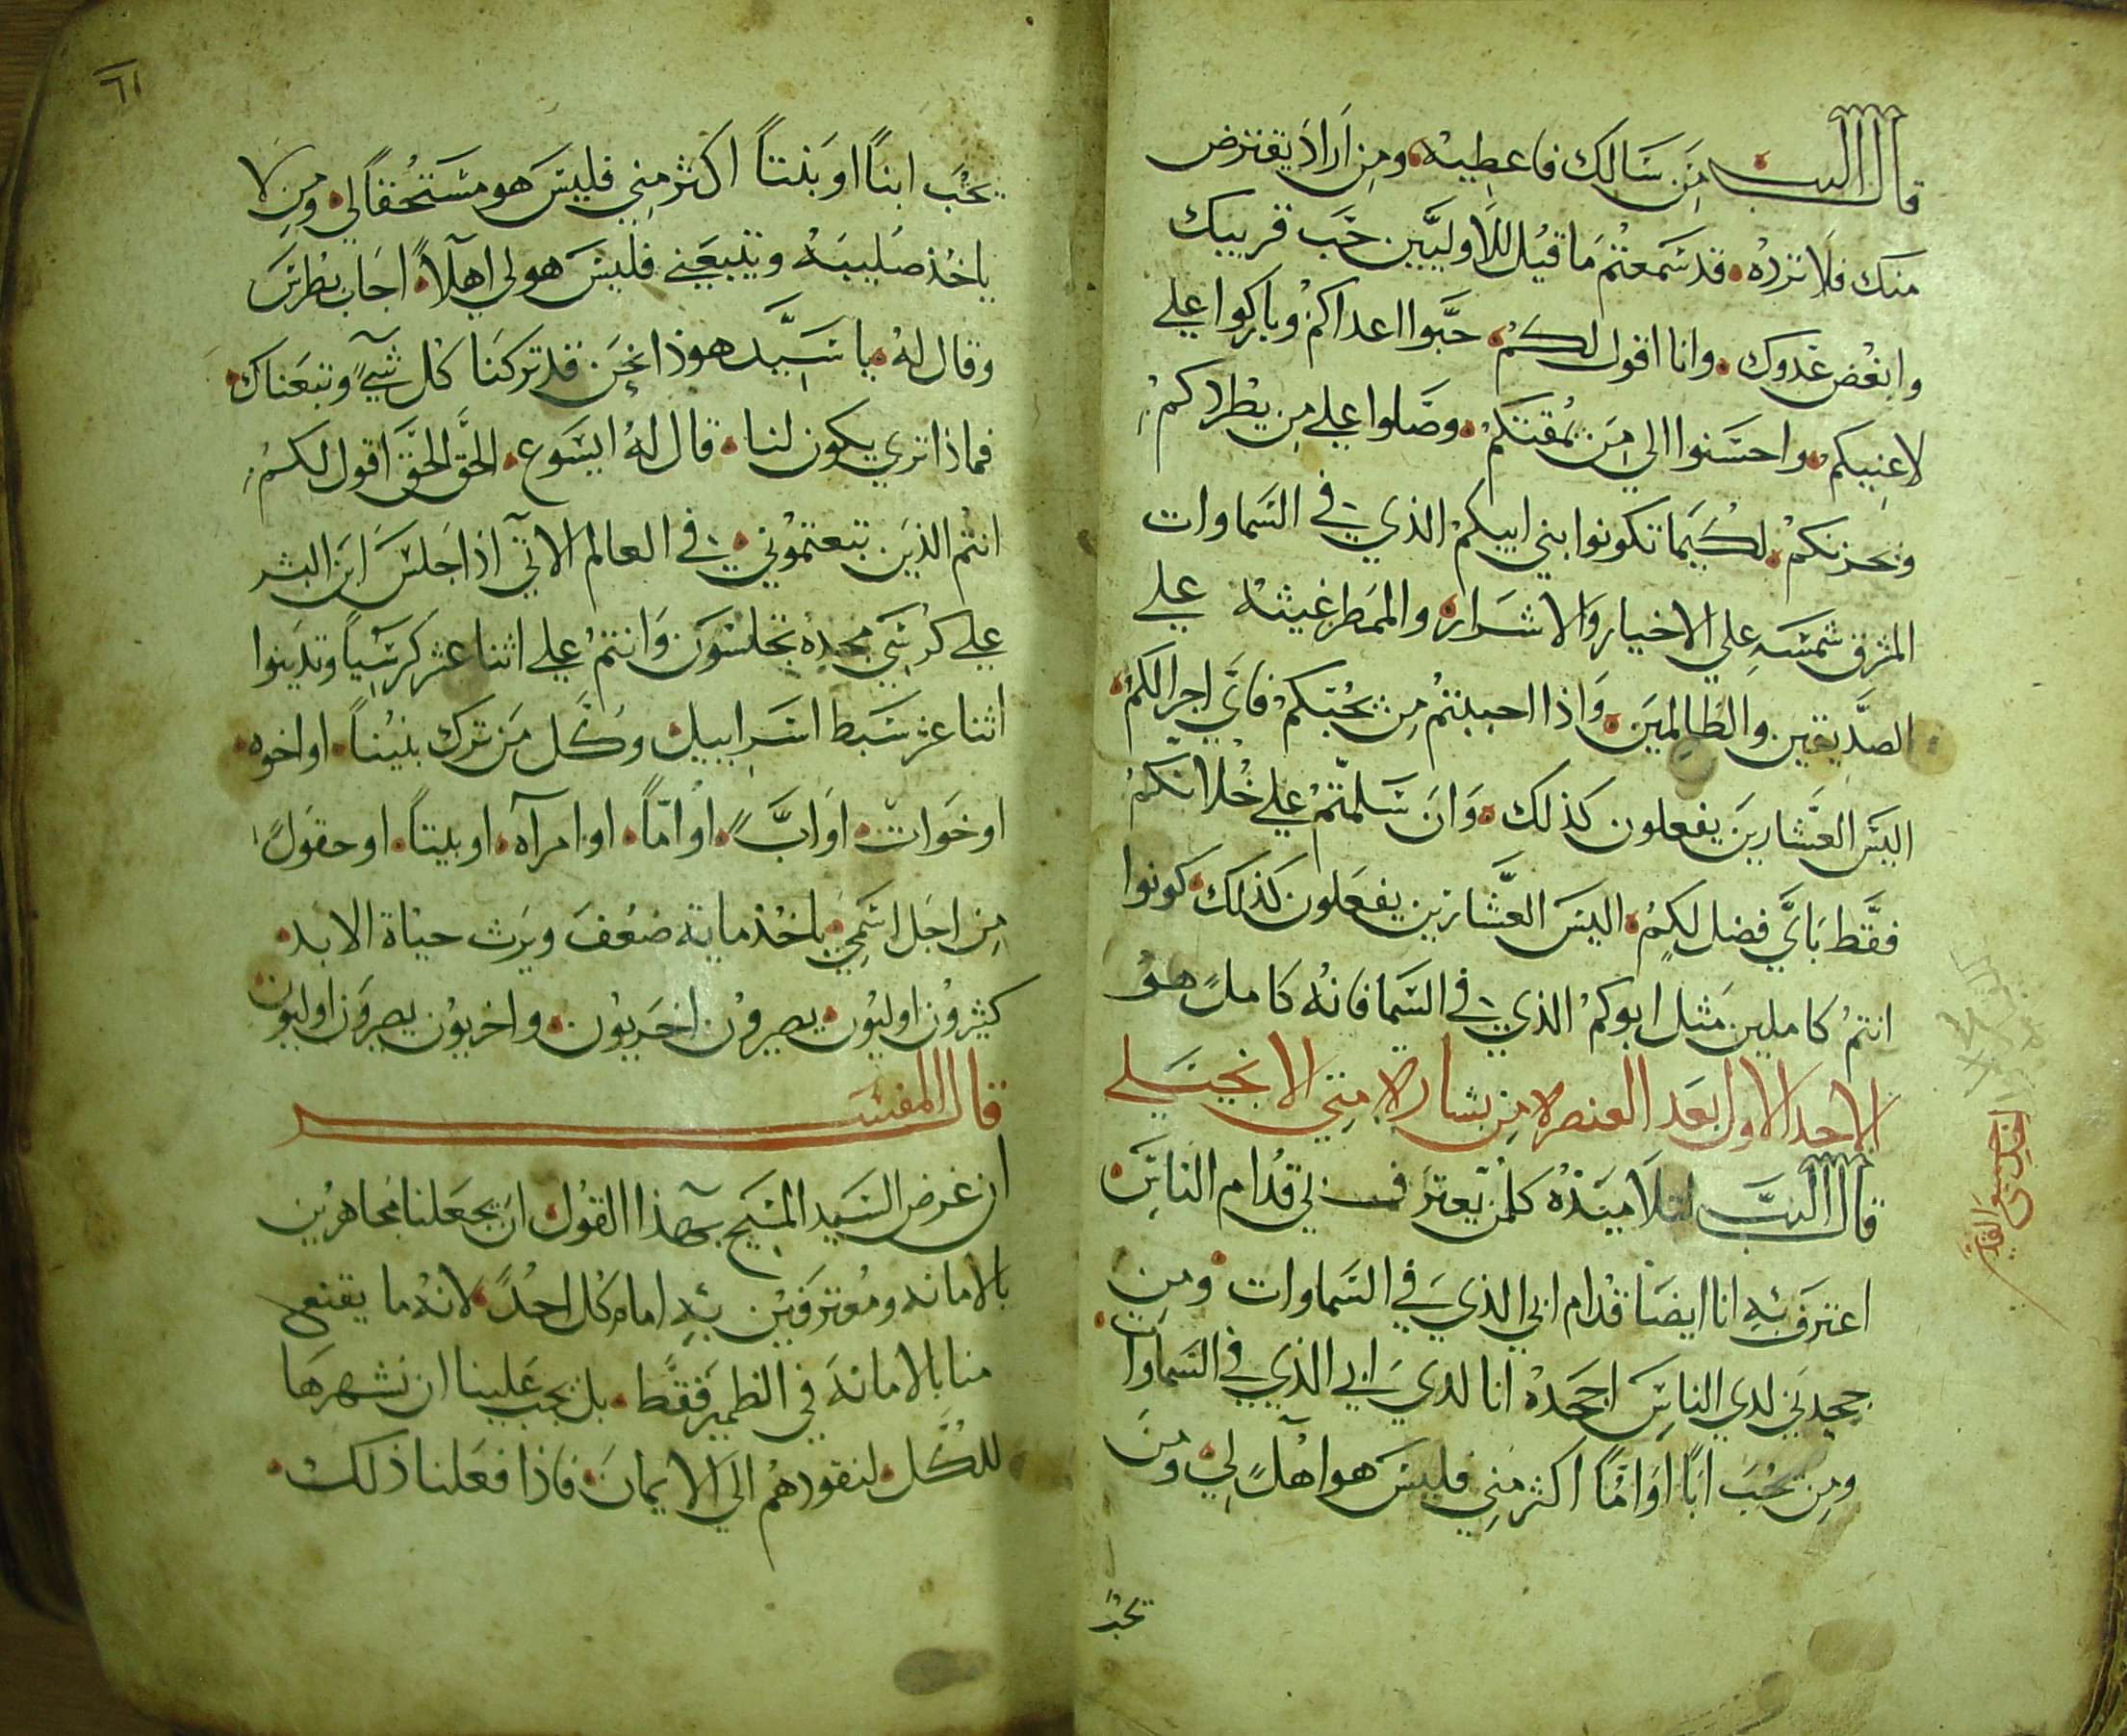 قال الرب من سالك فاعطيه ومن اراد يقترض
منك فلا ترده قد سمعتم ما قيل للاوليين حب قريبك
وابغض عدوك وانا اقول لكم حبوا اعداكم وباركوا علي
لاعنيكم واحسنوا الي من يمقتكم وصلوا علي من يطردكم
ويحزنكم لكيما تكونوا بني ابيكم الذي في السماوات
المشرق شمسه علي الاخيار والاشرار والممطر غيثه علي
الصديقين والظالمين واذا احببتم من يحبكم فاي اجر لكم
اليس العشارين يفعلون كذلك وان سلمتم علي خلانكم
فقط باي فضل لكم اليس العشارين يفعلون كذلك كونوا
انتم كاملين مثل ابوكم الذي في السما فانه كامل هو
الاحد الاول بعد العنصره من بشارة متي الانجيلي
قال الرب لتلاميذه كلمن يعترف بي قدام الناس
اعترف به انا ايضا قدام ابي الذي في السماوات ومن
جحدني لدي الناس اجحده انا لدي ابي الذي في السماوات
ومن يحب ابا او اما اكثر مني فليس هو اهل لي ومن
يحب
٦١
يحب ابنا او بنتا اكثر مني فليس هو مستحقا لي ومن لا
ياخذ صليبه ويتبعني فليس هو لي اهلا اجاب بطرس
وقال له يا سيد هوذا نحن قد تركنا كل شي وتبعناك
فماذا تري يكون لنا قال له ايسوع الحق الحق اقول لكم
انتم الذين تبعتموني في العالم الاتي اذا جلس ابن البشر
علي كرسي مجده تجلسون وانتم علي اثنا عشر كرسيا وتدينوا
اثنا عشر سبط اسراييل وكل من ترك بنينا او اخوه
او خوات او اب او اما او امراه او بيتا او حقول
من اجل اسمي ياخذ ماية ضعف ويرث حياة الابد
كثيرون اوليون يصيرون اخريون واخريون يصيرون اوليون
قال المفسر
ان غرض السيد المسيح بهذا القول ان يجعلنا مجاهرين
بالامانه ومعترفين به امام كل احد لانه ما يقنع
منا بالامانه في الظمير فقط بل يجب علينا ان نشهرها
للكل لنقودهم الي الايمان فاذا فعلنا ذلك